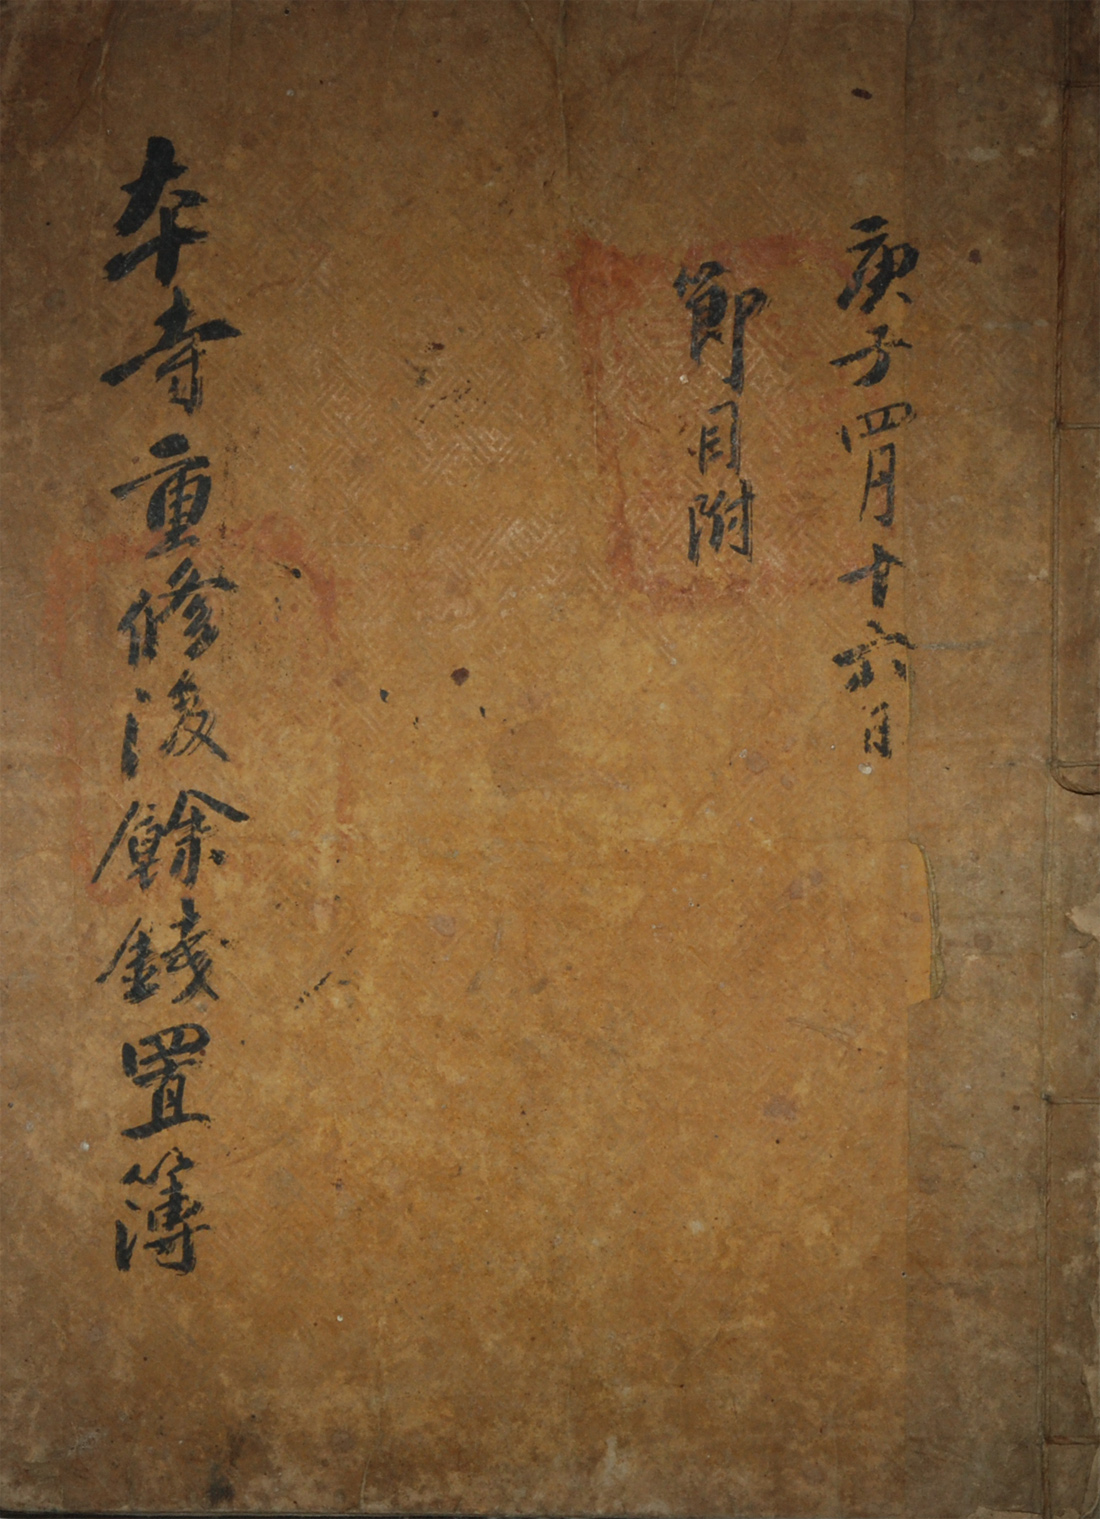 庚子四月十六日
節目附
本寺重修後餘錢置簿